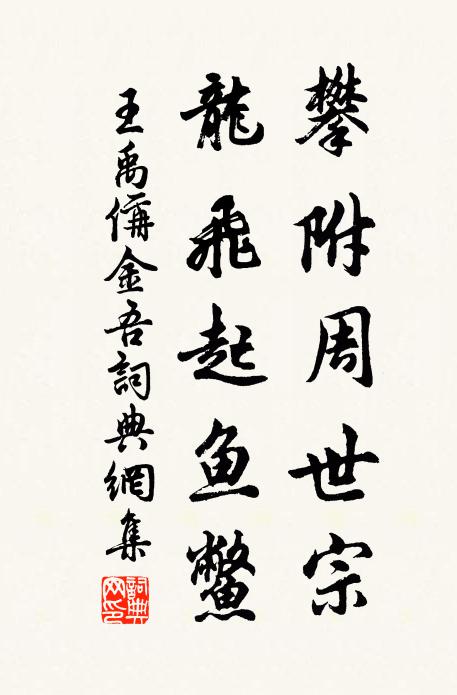 攀附周世宗
龍飛起鱼鱉
王禹偁金吾詞典網集
詞典网印